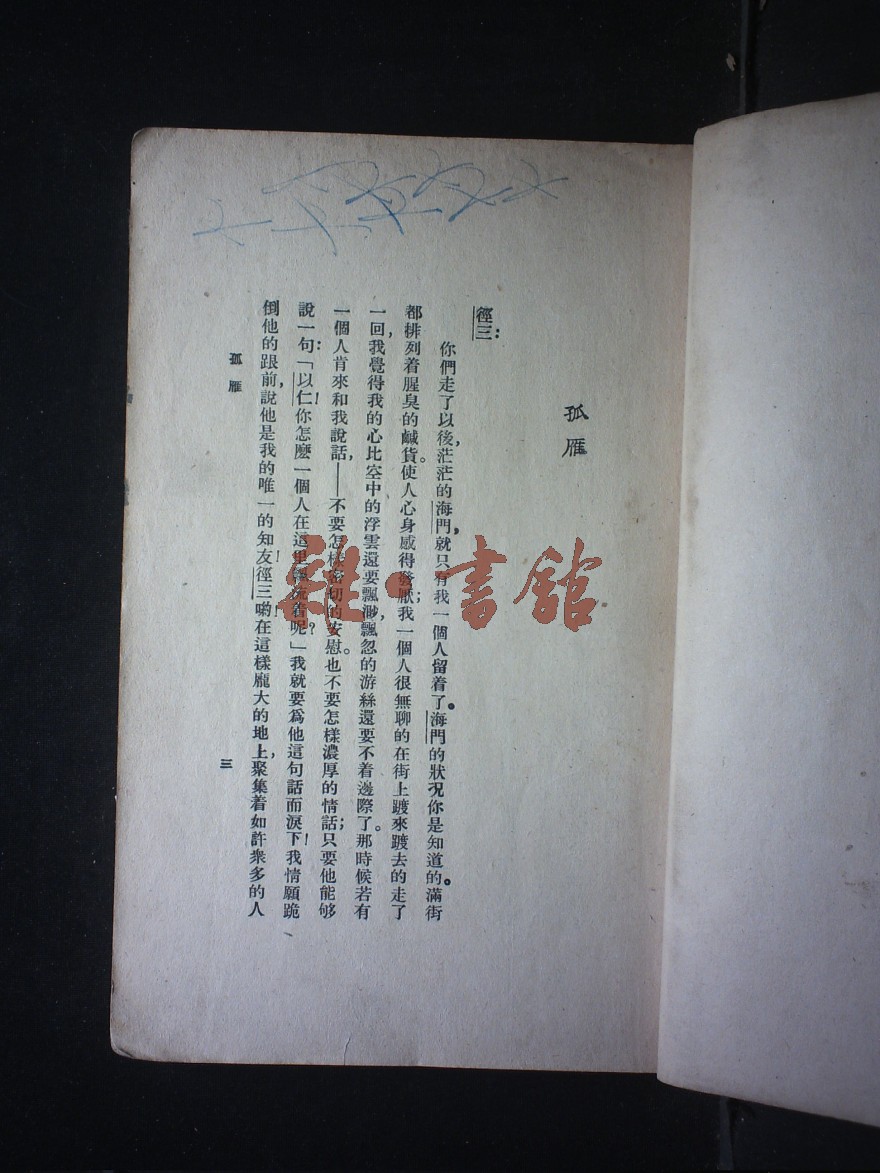 孤雁
徑三：
你們走了以後，茫茫的海門，就只有我一個人留着了。海門的狀況你是知道的。滿街
都排列着腥臭的鹹貨。使人心身感得發厭；我一個人很無聊的在街上踱來踱去的走了
一回，我覺得我的心比空中的浮雲還要飄渺，飄忽的游絲還要不着邊際了。那時候若有
一個人肯來和我說話，——不要怎樣密切的安慰。也不要怎樣濃厚的情話；只要他能够
說一句：「以仁！你怎麼一個人在這里飄流着呢？」我就要爲他這句話而淚下！我情願跪
倒他的跟前，說他是我的唯一的知友！徑三喲！在這樣龐大的地上，聚集着如許衆多的人
孤雁
三
雜·書館